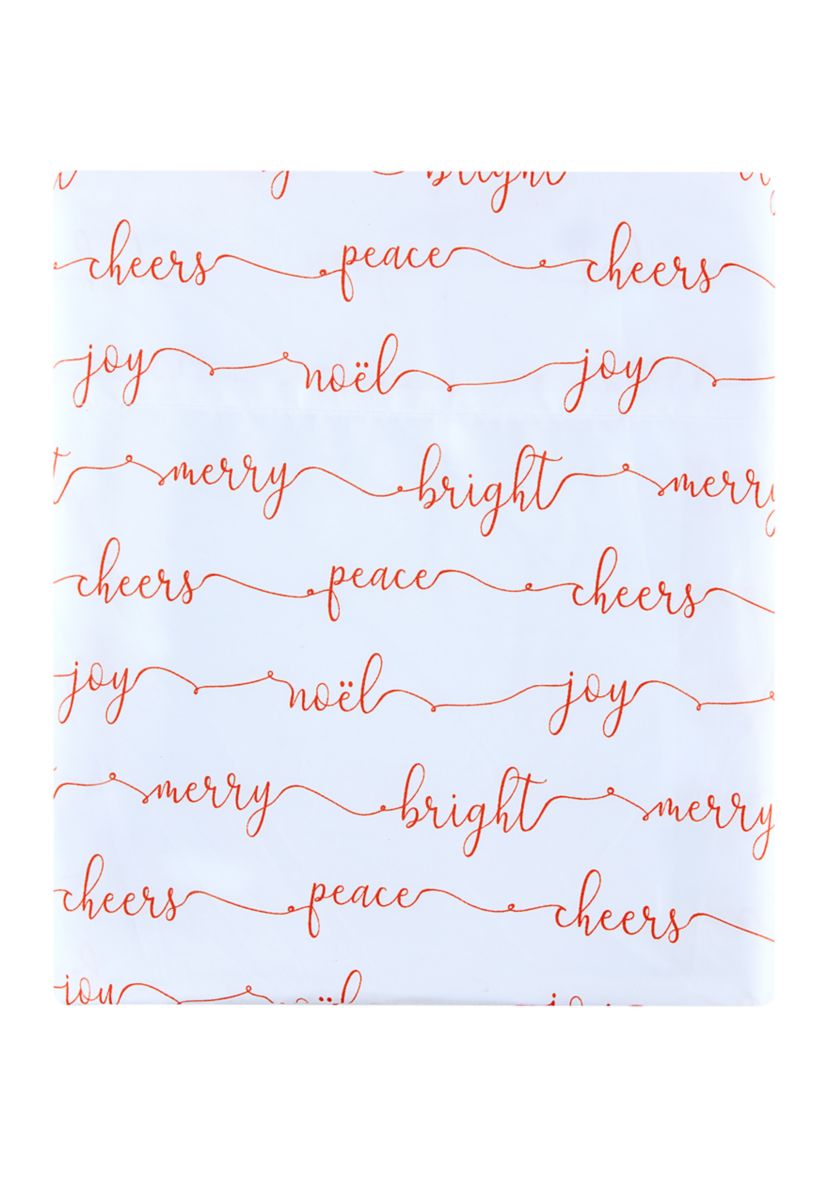 bright
cheers peace cheers
joy noël joy
merry bright merry
cheers peace cheers
joy noël joy
merry bright merry
cheers peace cheers
joy noël